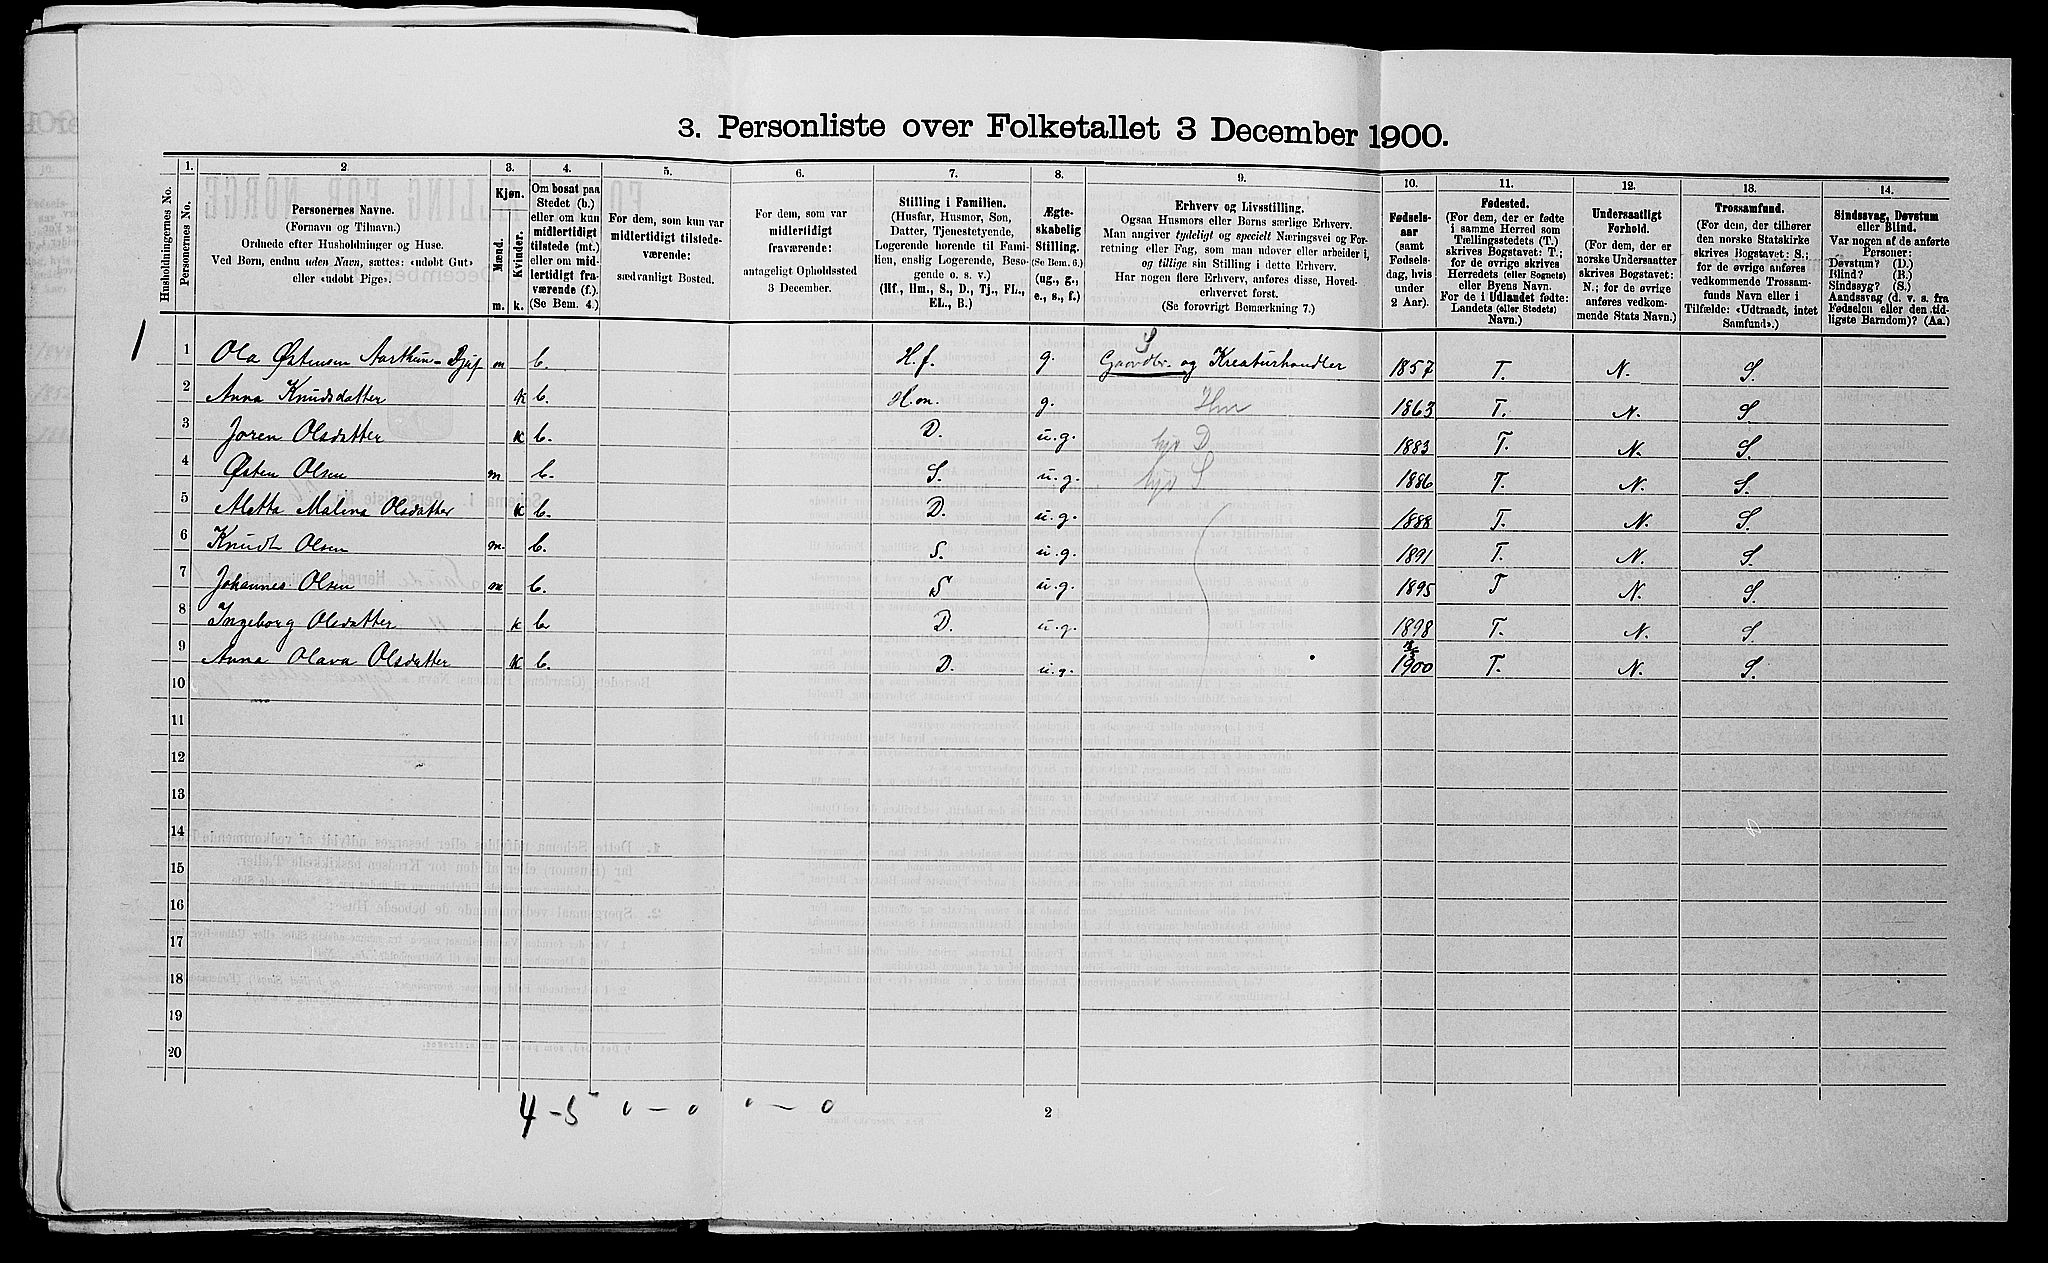 3. Personliste over Folketallet 3 December 1900.
Husholdningernes No.
1.
Personernes No.
2
Personernes Navne.
(Fornavn og Tilnavn.)
Ordnede efter Husholdninger og Huse.
Ved Børn, endnu uden Navn, sættes: «udøbt Gut»
eller «udøbt Pige».
3.
Kjøn.
Mænd.
Kvinder.
m. k.
4.
Om bosat paa
Stedet (b.)
eller om kun
midlertidigt
tilstede (mt.)
eller om mid-
lertidigt fra-
værende (f.).
(Se Bem. 4.)
5.
For dem, som kun var
midlertidigt tilstede-
værende:
sædvanligt Bosted.
6.
For dem, som var
midlertidigt
fraværende:
antageligt Opholdssted
3 December.
7.
Stilling i Familien.
(Husfar, Husmor, Søn,
Datter, Tjenestetyende,
Logerende hørende til Fami-
lien, enslig Logerende, Besø-
gende o. s. v.)
(Hf., Hm., S., D., Tj., FL.,
EL., B.)
8.
Ægte-
skabelig
Stilling.
(Se Bem. 6.)
(ug., g.,
e., s., f.)
9.
Erhverv og Livsstilling.
Ogsaa Husmors eller Børns særlige Erhverv.
Man angiver tydeligt og specielt Næringsvei og For-
retning eller Fag, som man udøver eller arbeider i,
og tillige sin Stilling i dette Erhverv.
Har nogen flere Erhverv, anføres disse, Hoved-
erhvervet først.
(Se forøvrigt Bemærkning 7.)
10.
Fødsels-
aar
(samt
Fødsels-
dag, hvis
under
2 Aar).
11.
Fødested.
(For dem, der er fødte
i samme Herred som
Tællingsstedets (T.)
skrives Bogstavet: T.;
for de øvrige skrives
Herredets (eller Sognets)
eller Byens Navn.
For de i Udlandet fødte:
Landets (eller Stedets)
Navn.)
12.
Undersaatligt
Forhold.
(For dem, der er
norske Undersaatter
skrives Bogstavet:
N.; for de øvrige
anføres vedkom-
mende Stats Navn.)
13.
Trossamfund.
(For dem, der tilhører
den norske Statskirke
skrives Bogstavet: S.;
for de øvrige anføres
vedkommende Trossam-
funds Navn eller i
Tilfælde: «Udtraadt, intet
Samfund».)
14.
Sindssvag, Døvstum
eller Blind.
Var nogen af de anførte
Personer:
Døvstum? (D.)
Blind? (B.)
Sindssyg? (S.)
Aandssvag (d. v. s. fra
Fødselen eller den tid-
ligste Barndom)? (Aa.)
S
1 1 Ola Østensen m b. H.f. g. Gaardbr. og Kreaturhandler 1857 T. N. S.
2 Anna Knudsdatter k b. H.m. g. Hm 1863 T. N. S.
3 Joren Olsdatter k b. D. u.g. hjv D 1883 T. N. S.
4 Østen Olsen m b. S. u.g. hjv S 1886 T. N. S.
5 Aletta Malena Olsdatter k b. D. u.g. 1888 T. N. S.
6 Knudt Olsen m. b. S. u.g. 1891 T. N. S.
7 Johannes Olsen m b. S u.g. 1895 T N. S.
8 Ingeborg Olsdatter k b. D. u.g. 1898 T. N. S.
9 Anna Olava Olsdatter k b. D. u.g. 1900 T. N. S.
10
11
12
13
14
15
16
17
18
19
20
4 - 5 0 - 0 0 - 0
2